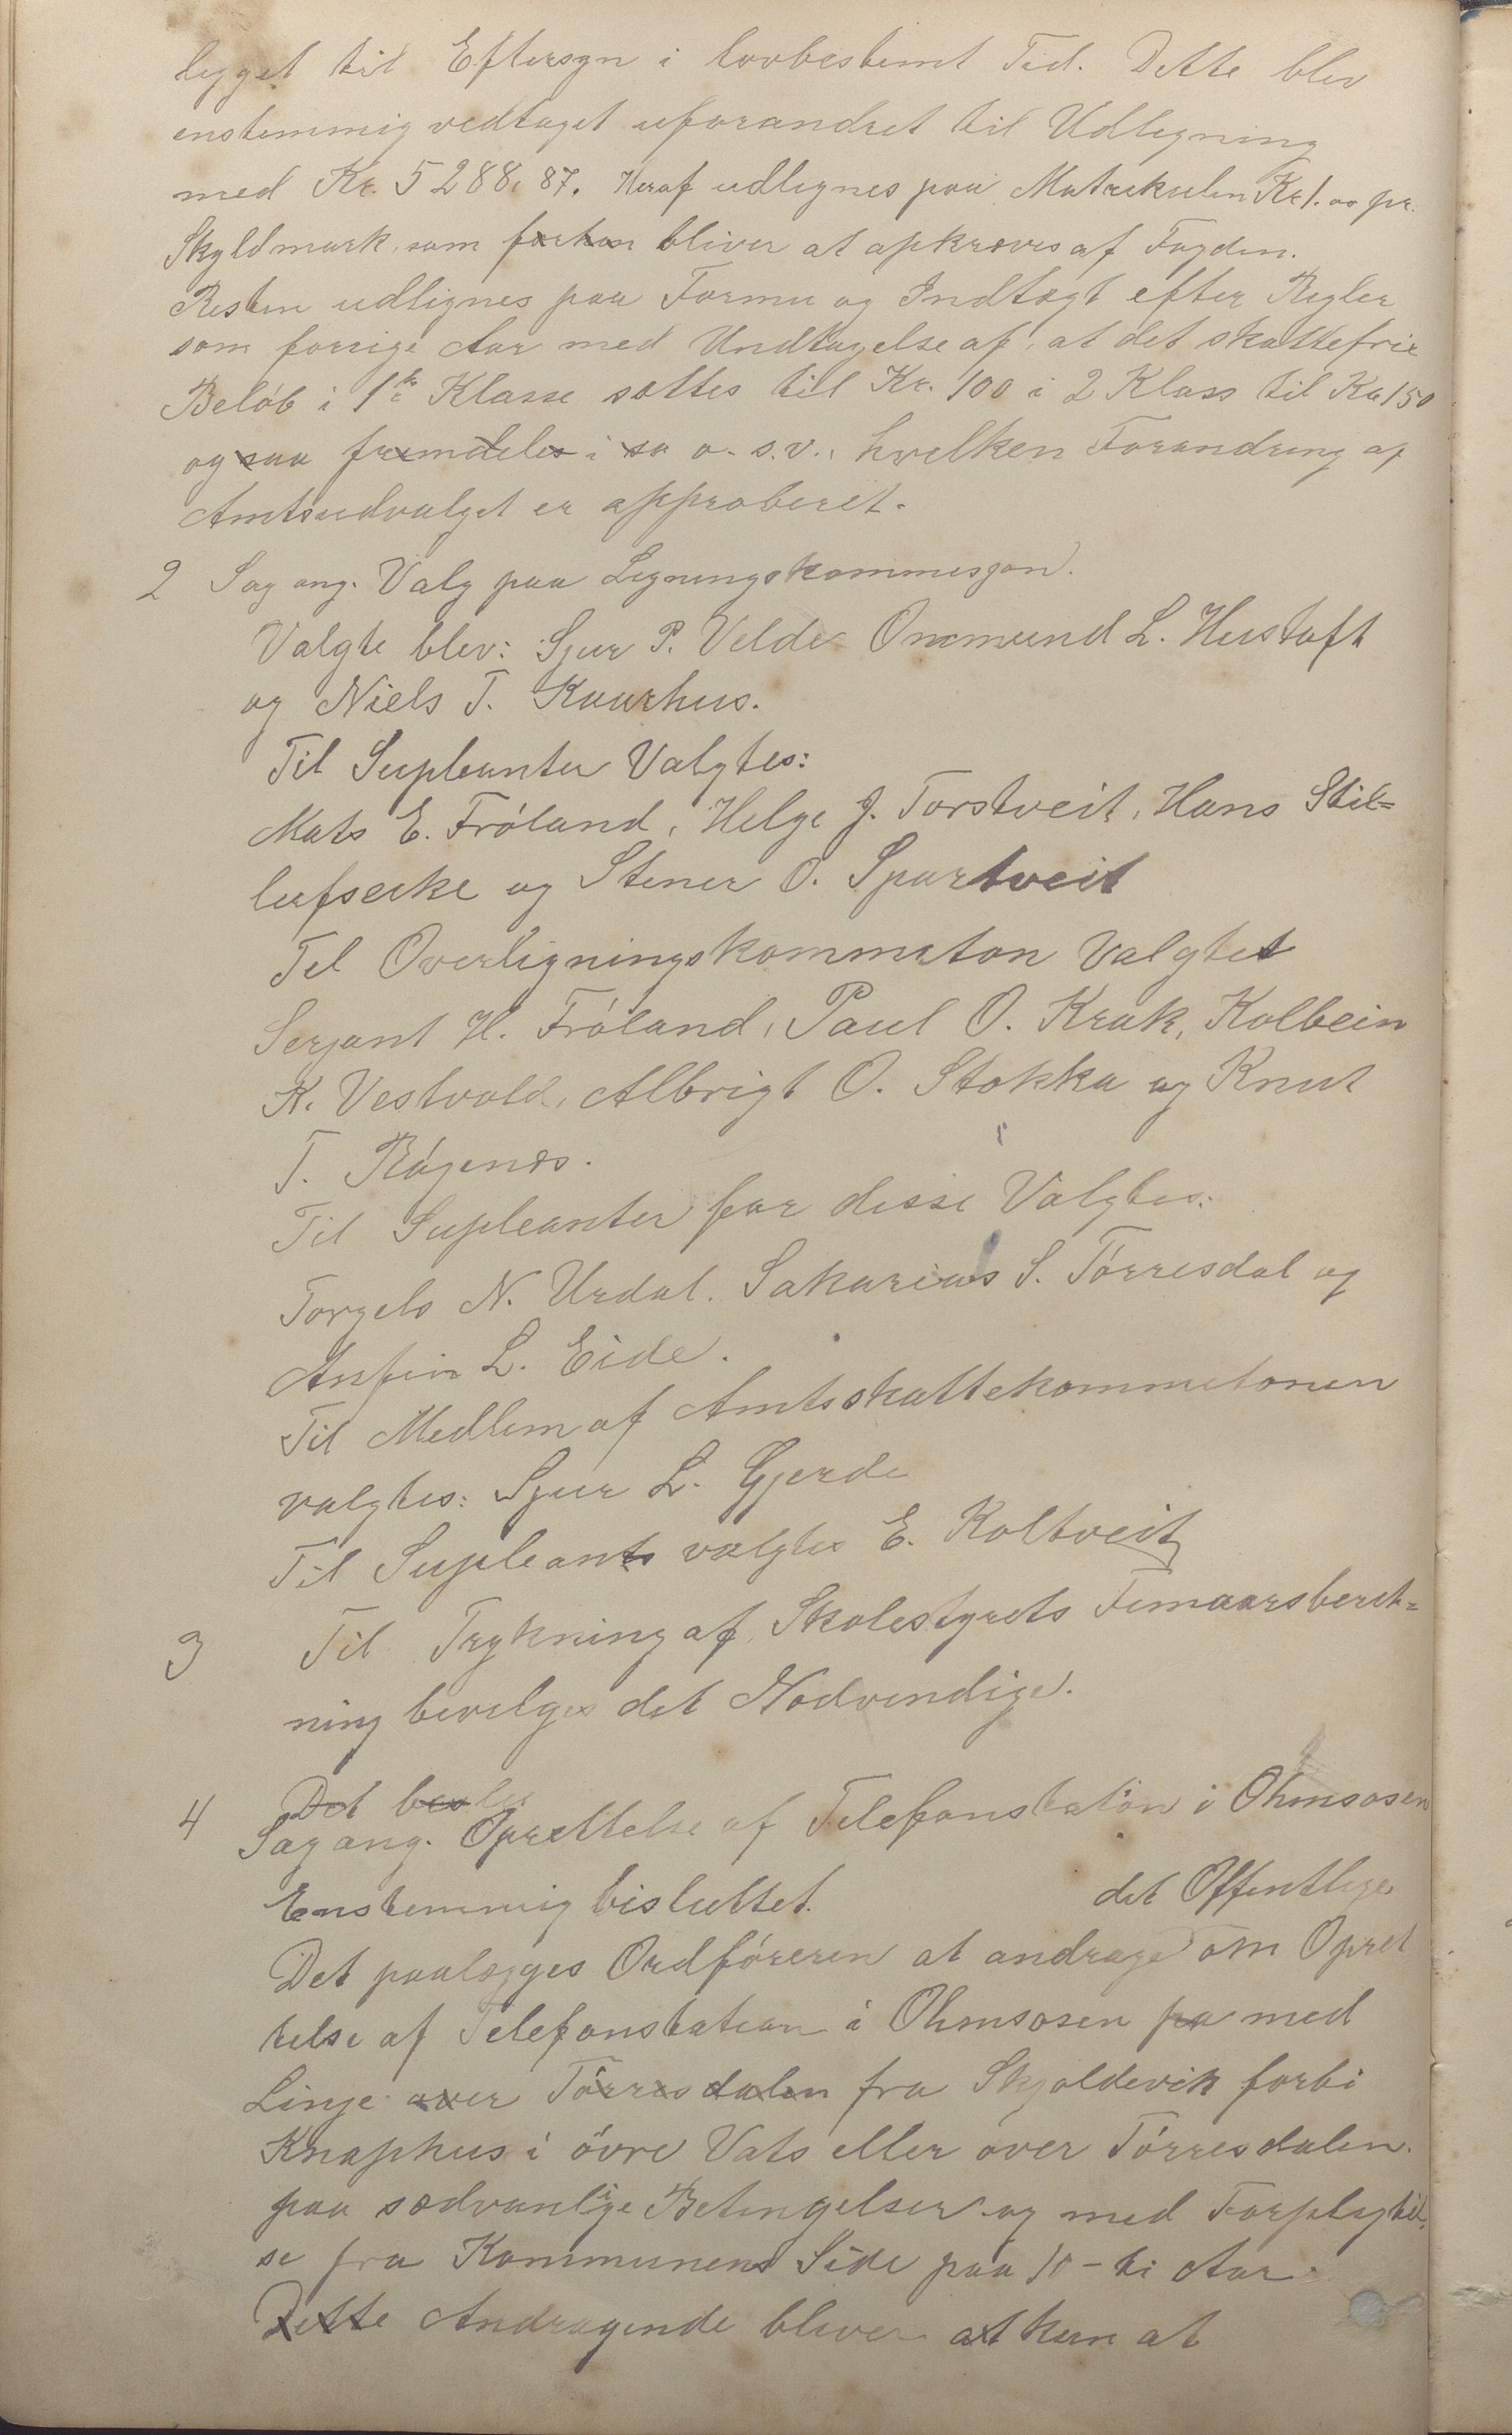 legget til Eftersyn i lovbestemt Tid. Dette blev
enstemmig vedtaget uforandret til Udligning
med Kr. 5288,87. Heraf udlignes paa Matrikulen Kr 1.00 pr.
Skyldmark, som forhen bliver at opkræves af Fogden.
Resten udlignes paa Formu og Indtægt efter Regler
som forrige Aar med Undtagelse af, at det skattefrie
Beløb i 1te Klasse sættes till Kr. 100 i 2 Klass til Kr 150
og saa fremdeles i sa o. s. v., hvilken Forandring af
Amtsudvalget er approberet.
2 Sag ang. Valg paa Ligningskommisjon.
Valgte blev: Sjur P. Velde Ommund L. Hustoft
og Niels T. Kaarhus.
Til Supleanter Valgtes:
Mats E. Frøland, Helge J. Torstveit, Hans Stil=
lufseike og Stener O. Spartveit
Til Overligningskommiton Valgtet
Serjant H. Frøland, Paul O. Krak, Kolbein
K. Vestvold, Albrigt O. Stokka og Knut
T. Røgenes.
Til Supleanter for disse Valgtes:
Torgels N. Urdal. Sakarias S. Tørresdal og
Anfin L. Eide.
Til Medlem af Amtsskattekommitonen
valgtes: Sjur L. Gjerde
Til Supleants valgtes E. Koltveit
3 Til Trykning af Skolestyrets Femaarsberet=
ning bevilges det Nodvendige.
Det bes
4 Sag ang. Oprettelse af Telefonstation i Ohmsosen
Enstemmig bisluttet. det Offentlige
Det paalægges Ordføreren at andrage om Opret
telse af Telefonstation i Ohmsosen pa med
Linje over Tørresdalen fra Skjoldevik forbi
Knaphus i øvre Vats eller over Tørresdalen.
paa sædvanlige Betingelser og med Forpligtel,
se fra Kommunens Side paa 10 - ti Aar.
Dette Andragende bliver at kun at